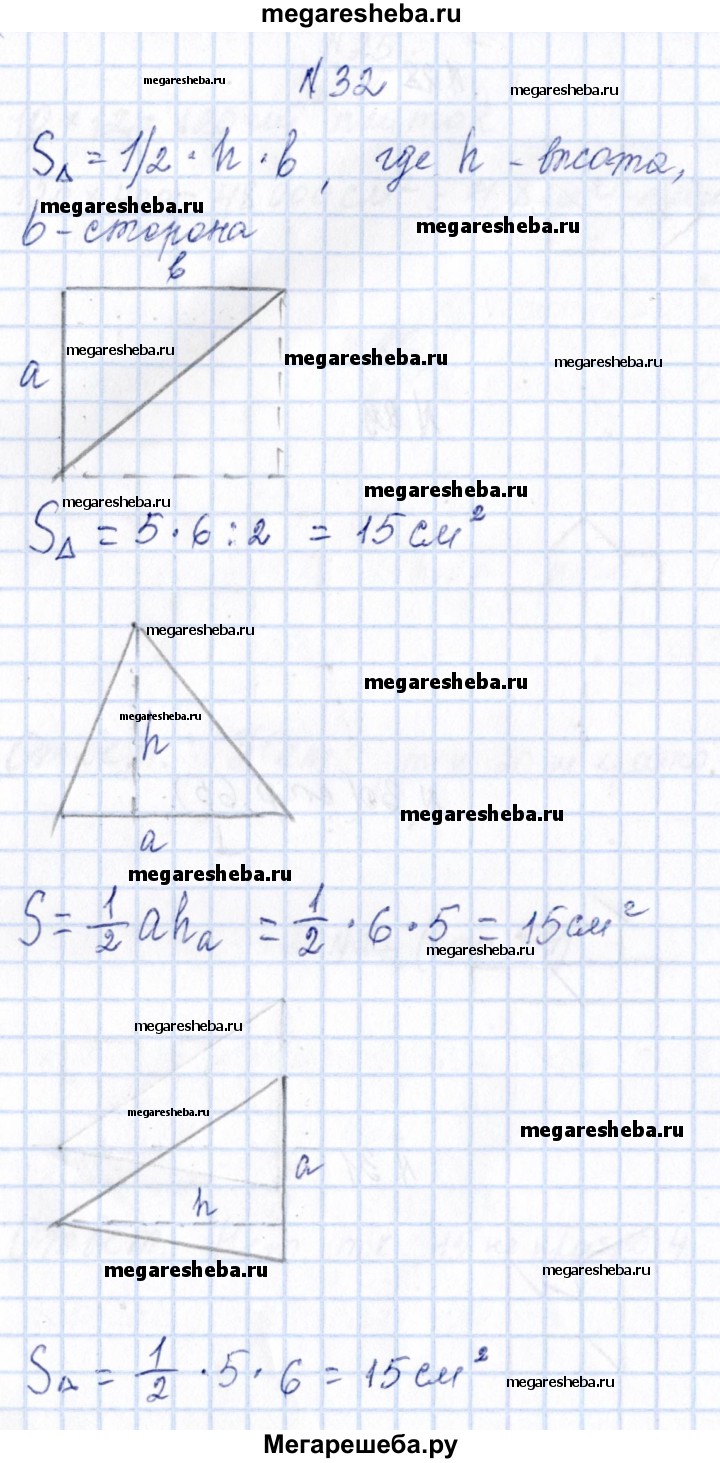 megaresheba.ru
N 32
megaresheba.ru
megaresheba.ru
S△ = 1/2 · h · b, где h - высота,
megaresheba.ru
b - сторона
megaresheba.ru
b
megaresheba.ru
megaresheba.ru
megaresheba.ru
a
megaresheba.ru
megaresheba.ru
S△ = 5 · 6 : 2 = 15 см²
megaresheba.ru
megaresheba.ru
megaresheba.ru
h
megaresheba.ru
a
megaresheba.ru
S = 1/2 ahₐ = 1/2 · 6 · 5 = 15 см²
megaresheba.ru
megaresheba.ru
megaresheba.ru
megaresheba.ru
a
h
megaresheba.ru
megaresheba.ru
S△ = 1/2 · 5 · 6 = 15 см²
megaresheba.ru
Мегарешеба.ру